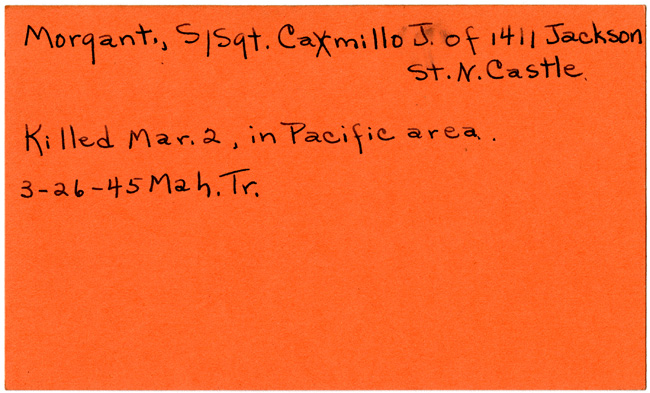 Morganti, S/Sgt. Carmillo J. of 1411 Jackson
St. N. Castle.
Killed Mar. 2, in Pacific area.
3-26-45 Mah. Tr.